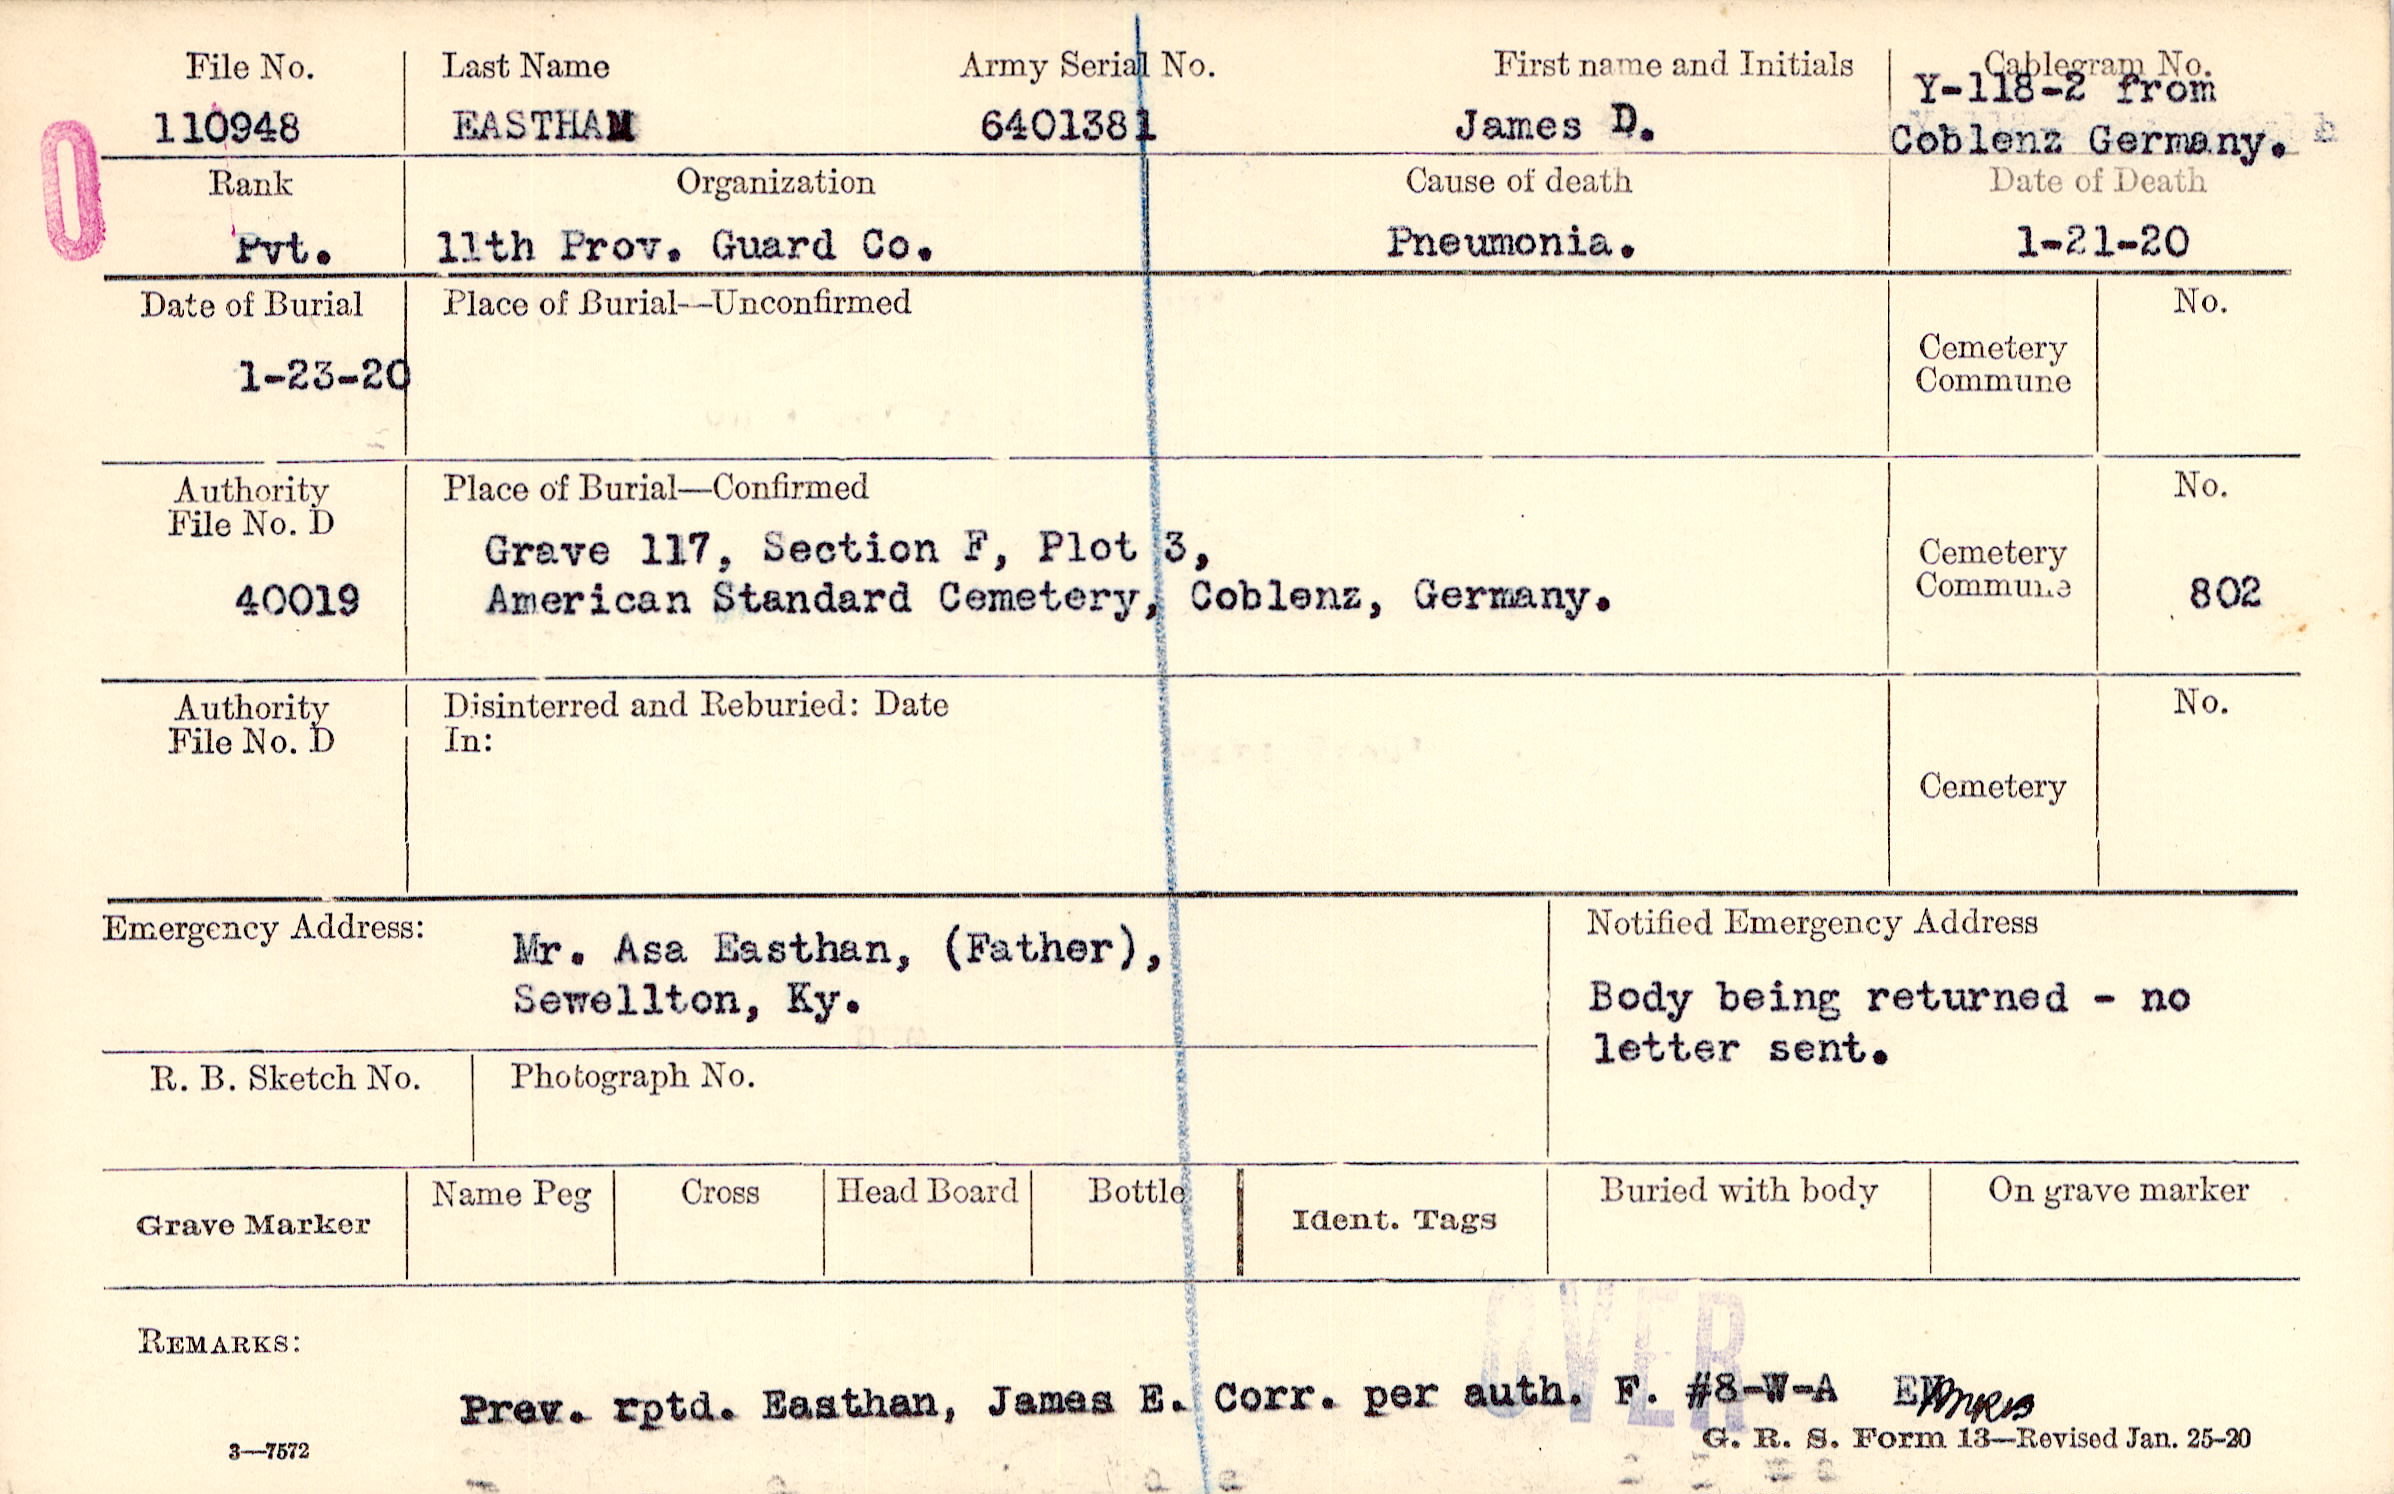 File No. Last Name Army Serial No. First name and Initials Cablegram No.
110948 EASTHAM 6401381 James D. Y-118-2 from
Coblenz Germany.
Rank Organization Cause of death Date of Death
Pvt. 11th Prov. Guard Co. Pneumonia. 1-21-20
Date of Burial Place of Burial—Unconfirmed No.
1-23-20 Cemetery
Commune
Authority Place of Burial—Confirmed No.
File No. D
Grave 117, Section F, Plot 3, Cemetery
40019 American Standard Cemetery, Coblenz, Germany. Commune 802
Authority Disinterred and Reburied: Date No.
File No. D In:
Cemetery
Emergency Address: Notified Emergency Address
Mr. Asa Easthan, (Father),
Sewellton, Ky. Body being returned - no
letter sent.
R. B. Sketch No. Photograph No.
Name Peg Cross Head Board Bottle Buried with body On grave marker
Grave Marker Ident. Tags
OVER
REMARKS:
Prev. rptd. Easthan, James E. Corr. per auth. F. #8-W-A
3—7572 G. R. S. Form 13—Revised Jan. 25-20